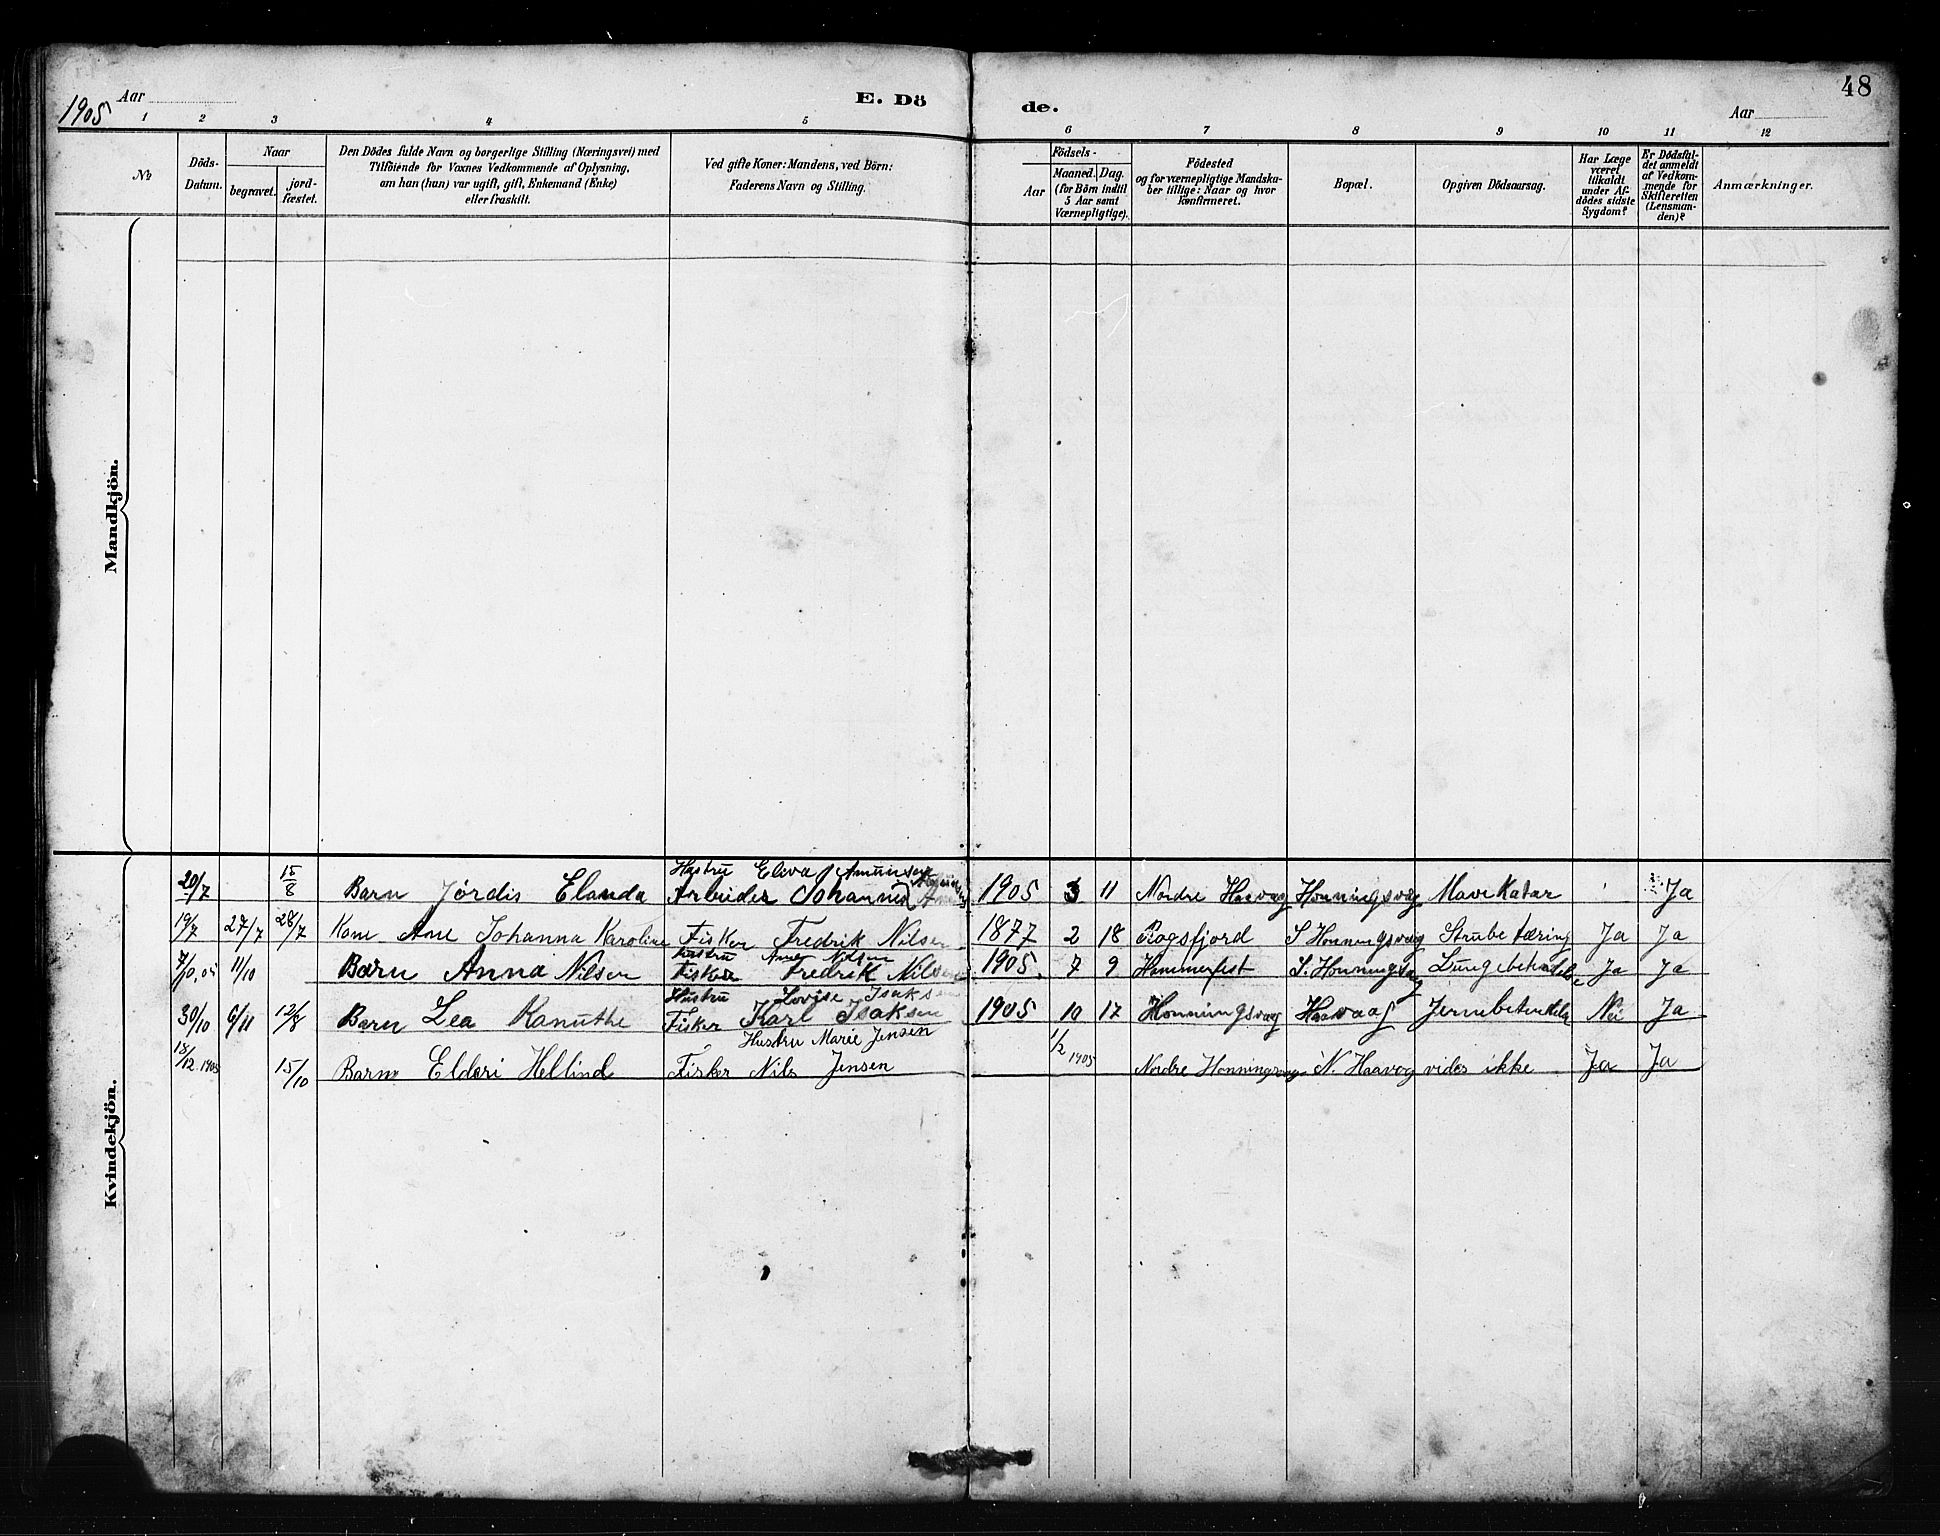 1905
Aar
E. Dö
de.
Aar
48
1 2 3 4 5 6 7 8 9 10 11 12
No
Döds-
Datum.
Naar
begravet.
jord-
fæstet.
Den Dödes fulde Navn og borgerlige Stilling (Næringsvei) med
Tilföiende for Voxnes Vedkommende af Oplysning,
om han (hun) var ugift, gift, Enkemand (Enke)
eller fraskilt.
Ved gifte Koner: Mandens, ved Börn:
Faderens Navn og Stilling.
Födsels-
Aar
Maaned.
Dag.
(for Börn indtil
5 Aar samt
Værnepligtige).
Födested
og for værnepligtige Mandska-
ber tillige: Naar og hvor
konfirmeret.
Bopæl.
Opgiven Dödsaarsag.
Har Læge
været
tilkaldt
under Af-
dödes sidste
Sygdom?
Er Dödsfal-
det anmeldt
af Vedkom-
mende for
Skifteretten
(Lensman-
den)?
Anmærkninger.
Mandkjön.
Kvindekjön.
Hustru Eleva Amunsen
20/7 15/8 Barn Jórdis Elanda Arbeider Johannes 1905 3 11 Nordre Haavag Honningsvæg Mave Katar Ja
19/7 27/7 28/7 Kone Ane Johanna Karoline Fisker Fredrik Nilsen 1877 2 18 Rogsfjord S Honningsvæg Strube tæring Ja Ja
Hustru Ane Nilsen
7/10, 05 11/10 Barn Anna Nilsen Fisker Fredrik Nilsen 1905. 7 9 Hammerfest S. Honningsvag Ja Ja
Hustru Lovise Isaksen
30/10 6/11 12/8 Barn Lea Kanuthe Fisker Karl Isaksen 1905 10 17 Honningsvæg Haavaag Nei Ja
Hustru Marie Jensen
18/12. 1905 15/10 Barn Elderi Hellind Fisker Nils Jensen 1/2 1905 Nordre Honningsvag N. Haavog vides ikke Ja Ja